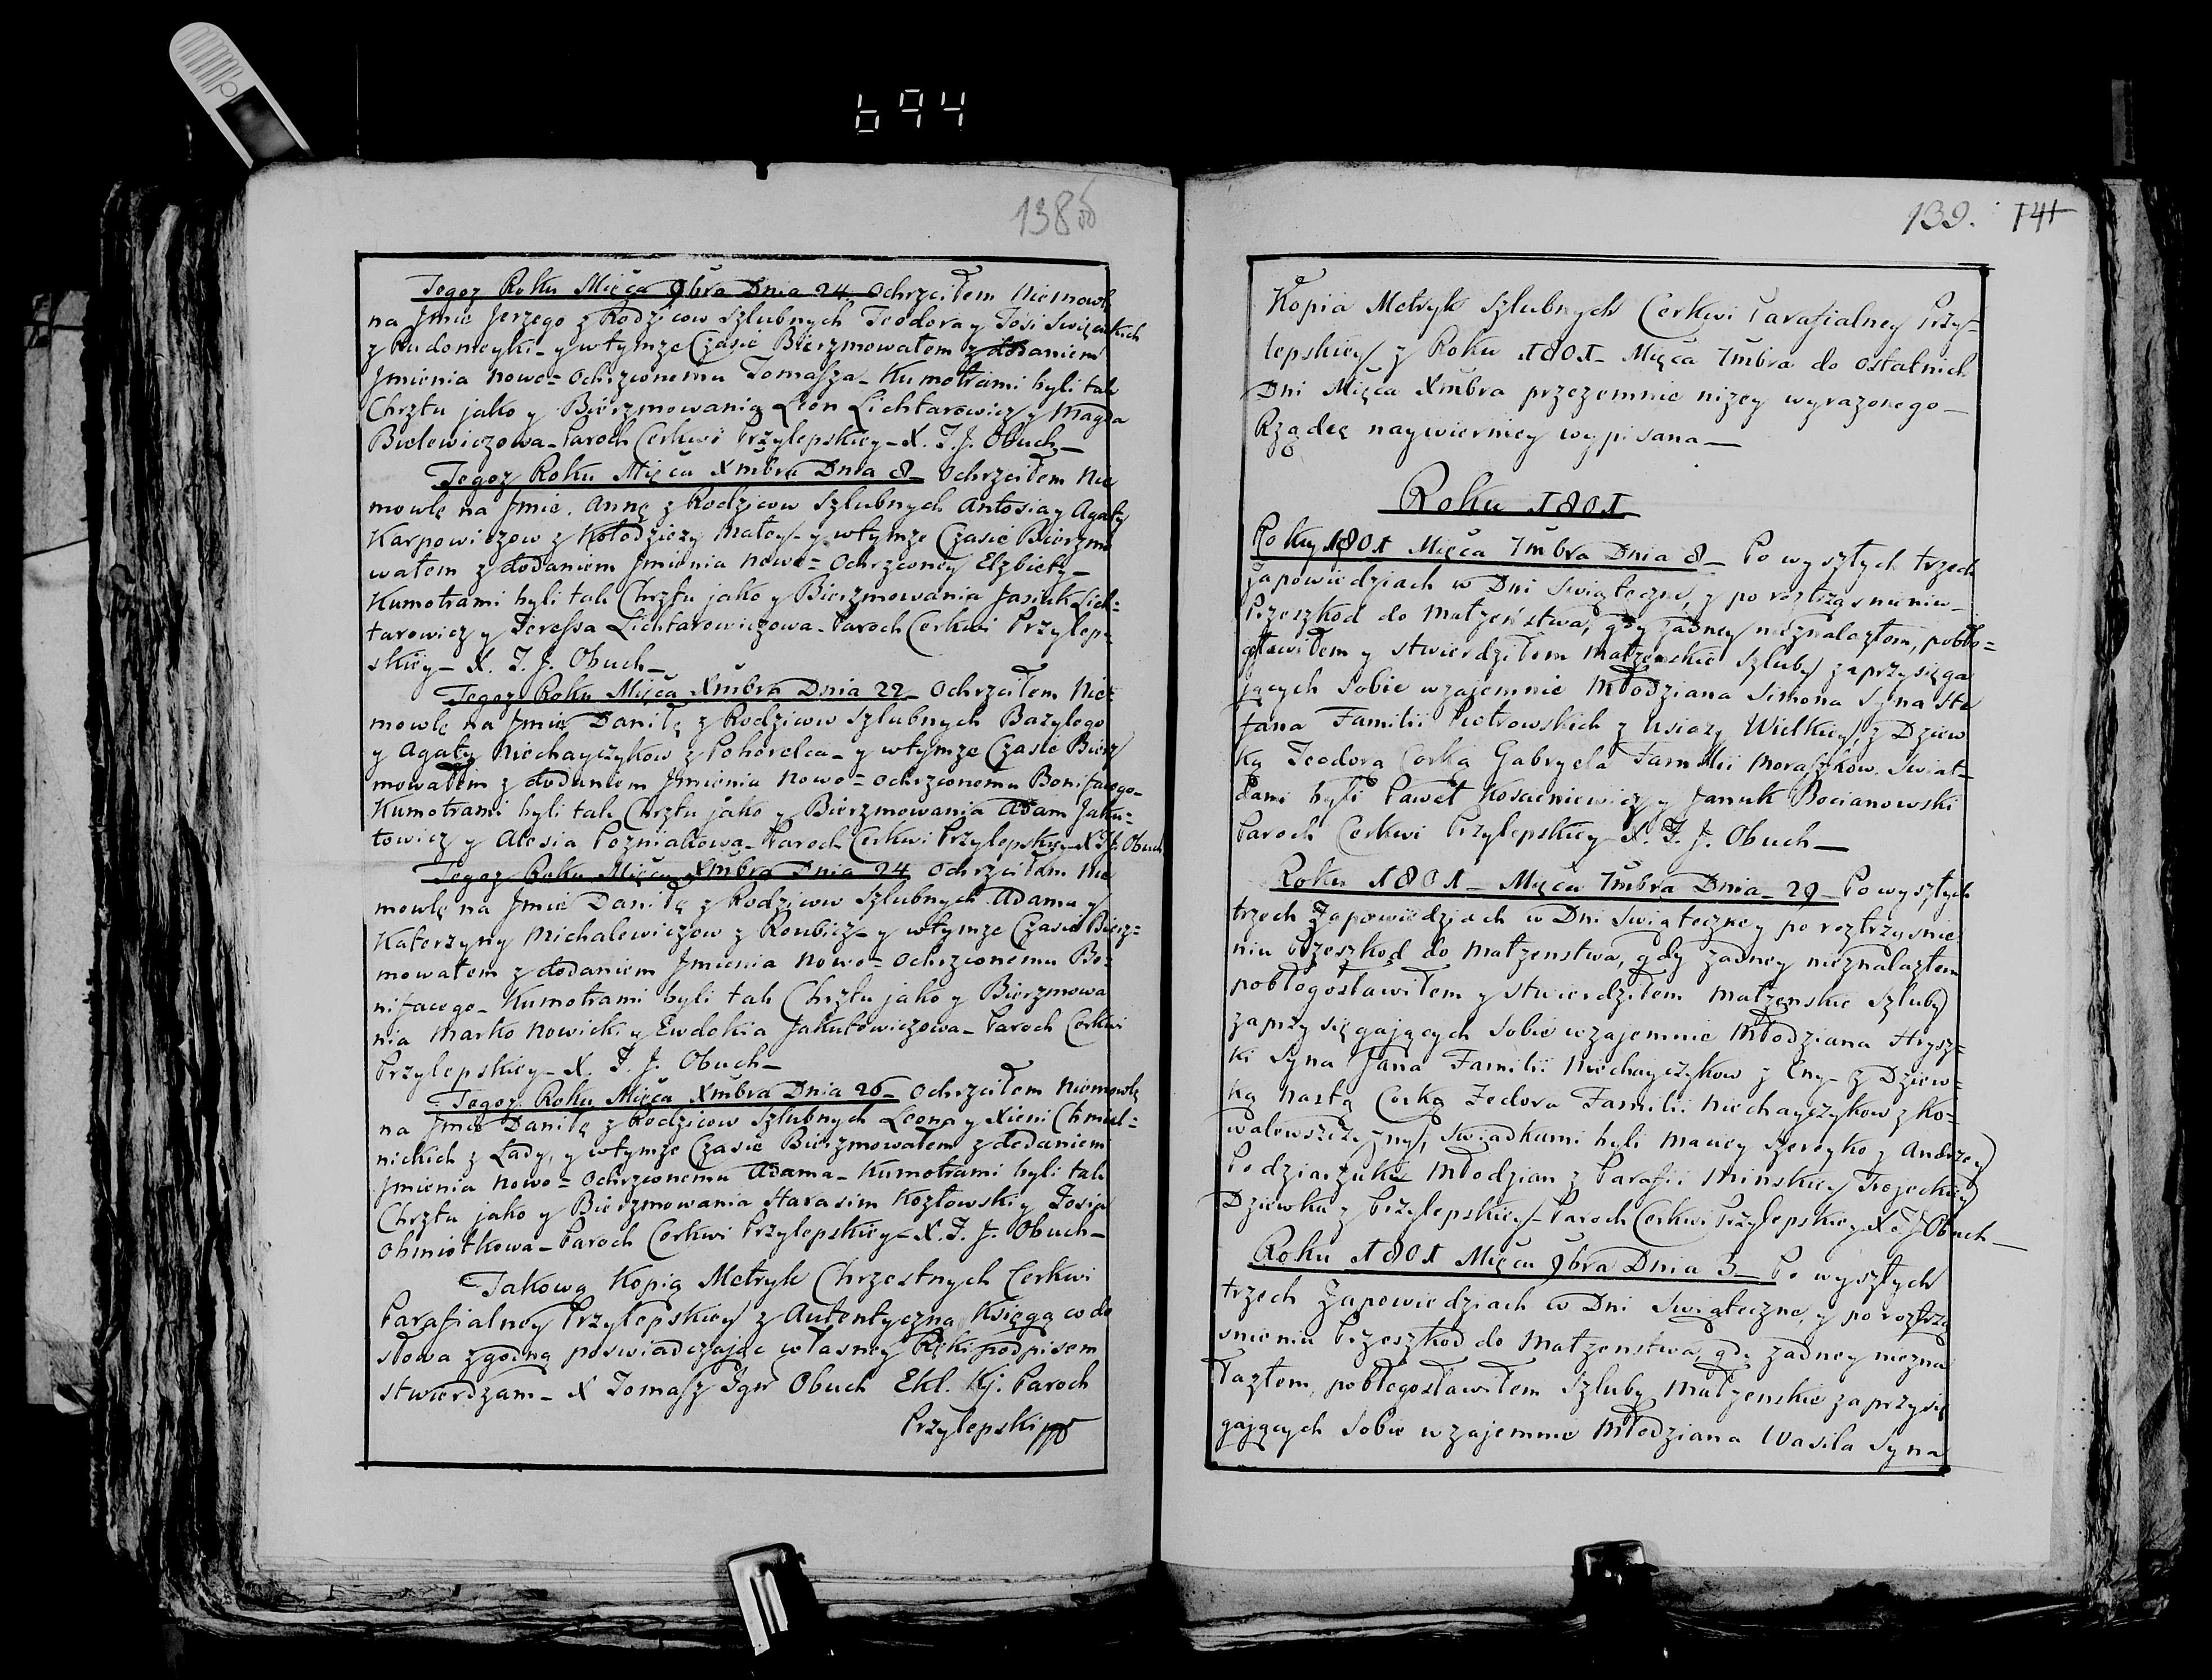 694
138об
Tegoz Roku Mięca 9bra Dnia 24 Ochrzciłem Niemowlę
na Jmie Jerzego z Rodzicow Szlubnych Teodora y Zosi
z Rudomeyki - y w tymze Czasie Bierzmowałem z dodaniem
Jmienia Nowo=Ochrzconemu Tomasza - Kumotrami byli tak
Chrztu jako y Bierzmowania Leon Lichtarowicz y Magda
Bielewiczowa - Paroch Cerkwi Przylepskiey - X. T. J. Obuch -
Tegoz Roku Mięca Xmbra Dnia 8 - Ochrzciłem Nie
mowlę na Jmie Annę z Rodzicow Szlubnych Antosia y Agaty
Karpowiczow z Kołodziezy Małey - y w tymze Czasie Bierzmo
wałem z dodaniem Jmienia Nowo=Ochrzconey Elzbiety -
Kumotrami byli tak Chrztu jako y Bierzmowania Jasiuk Lich=
tarowicz y Teressa Lichtarowiczowa - Paroch Cerkwi Przylep
skiey - X. T. J. Obuch -
Tegoz Roku Mięca Xmbra Dnia 22 - Ochrzciłem Nie=
mowlę na Jmie Daniłę z Rodzicow Szlubnych Bazylego
y Agaty Niechayczykow z Pohorelca - y w tymze Czasie Bierz
mowałem z dodaniem Jmienia Nowo=Ochrzconemu Bonifacego -
Kumotrami byli tak Chrztu jako y Bierzmowania Adam Jaku=
towicz y Alesia Pozniakowa - Paroch Cerkwi Przylepskiey - X T. J. Obuch
Tegoz Roku Mięca Xmbra Dnia 24 Ochrzciłem Nie
mowlę na Jmie Daniłę z Rodzicow Szlubnych Adama y
Katerzyny Michalewiczow z Roubicz - y w tymze Czasie Bierz=
mowałem z dodaniem Jmienia Nowo=Ochrzconemu Bo=
nifacego - Kumotrami byli tak Chrztu jako y Bierzmowa
nia Marko Nowicki y Ewdokia Jakutowiczowa - Paroch Cerkwi
Przylepskiey - X. T. J. Obuch -
Tegoz Roku Mięca Xmbra Dnia 26 - Ochrzciłem Niemowlę
na Jmie Daniłę z Rodzicow Szlubnych Leona y Xieni Chmiel=
nickich z Łady, y w tymze Czasie Bierzmowałem z dodaniem
Jmienia Nowo=Ochrzconemu Adama - Kumotrami byli tak
Chrztu jako y Bierzmowania Harasim Kozłowski y Zosia
Chmiołkowa - Paroch Cerkwi Przylepskiey - X. T. J. Obuch -
Takową Kopią Metryk Chrzestnych Cerkwi
Parafialney Przylepskiey z Autentyczną Księgą co do
słowa zgodną poswiadczaiąc własney Ręki podpisem
stwierdzam - X Tomasz Obuch Paroch
Przylepski
139. 141
Kopia Metryk Szlubnych Cerkwi Parafialney Przy=
lepskiey z Roku 1801 - Mięca 7mbra do ostatnich
Dni Mięca Xmbra przezemnie nizey wyrazonego -
Rządcę naywierniey wypisana -
Roku 1801
Roku 1801 Mięca 7mbra Dnia 8 - Po wyszłych trzech
Zapowiedziach w Dni Swiąteczne, y po roztrząsnieniu
Przeszkod do Małzeństwa, gdy zadney nieznalazłem, pobło=
gosławiłem y stwierdziłem Małzenskie Szluby zaprzysięga
jących sobie wzajemnie Młodziana Simona Syna Ste
fana Familii Piotrowskich z Usiazy Wielkiey, z Dziew
ką Teodorą Corką Gabryela Familii Moraszkow. Swiat=
kami byli Paweł Kosaeniewicz y Januk Bocianowski
Paroch Cerkwi Przylepskiey X. T. J. Obuch -
Roku 1801 - Mięca 7mbra Dnia - 29 - Po wyszłych
trzech Zapowiedziach w Dni Swiąteczne y po roztrzasnie=
niu Przeszkod do Małzenstwa, gdy zadney nieznalazłem
pobłogosławiłem y stwierdziłem Małzenskie Szluby
zaprzysięgających sobie wzajemnie Młodziana Hrysz=
ki Syna Jana Familii Niechayczykow z Cny - z Dziew=
ką Nastą Corką Fedora Familii Niechayczykow z Ko=
walewszczyzny, Swiadkami byli Maciey Szereyko y Andrzey
Podziaczuki Młodzian z Parafii Minskiey Trojeckiey
Dziewka z Przylepskiey - Paroch Cerkwi Przylepskiey X. T. J Obuch -
Roku 1801 Mięca 9bra Dnia 3 - Po wyszłych
trzech Zapowiedziach w Dni Swiąteczne, y po roztrzą
snieniu Przeszkod do Małzenstwa, gdy zadney niezna
lazłem, pobłogosławiłem Szluby Małzenskie zaprzysię
gających sobie wzajemnie Młodziana Wasila Syna